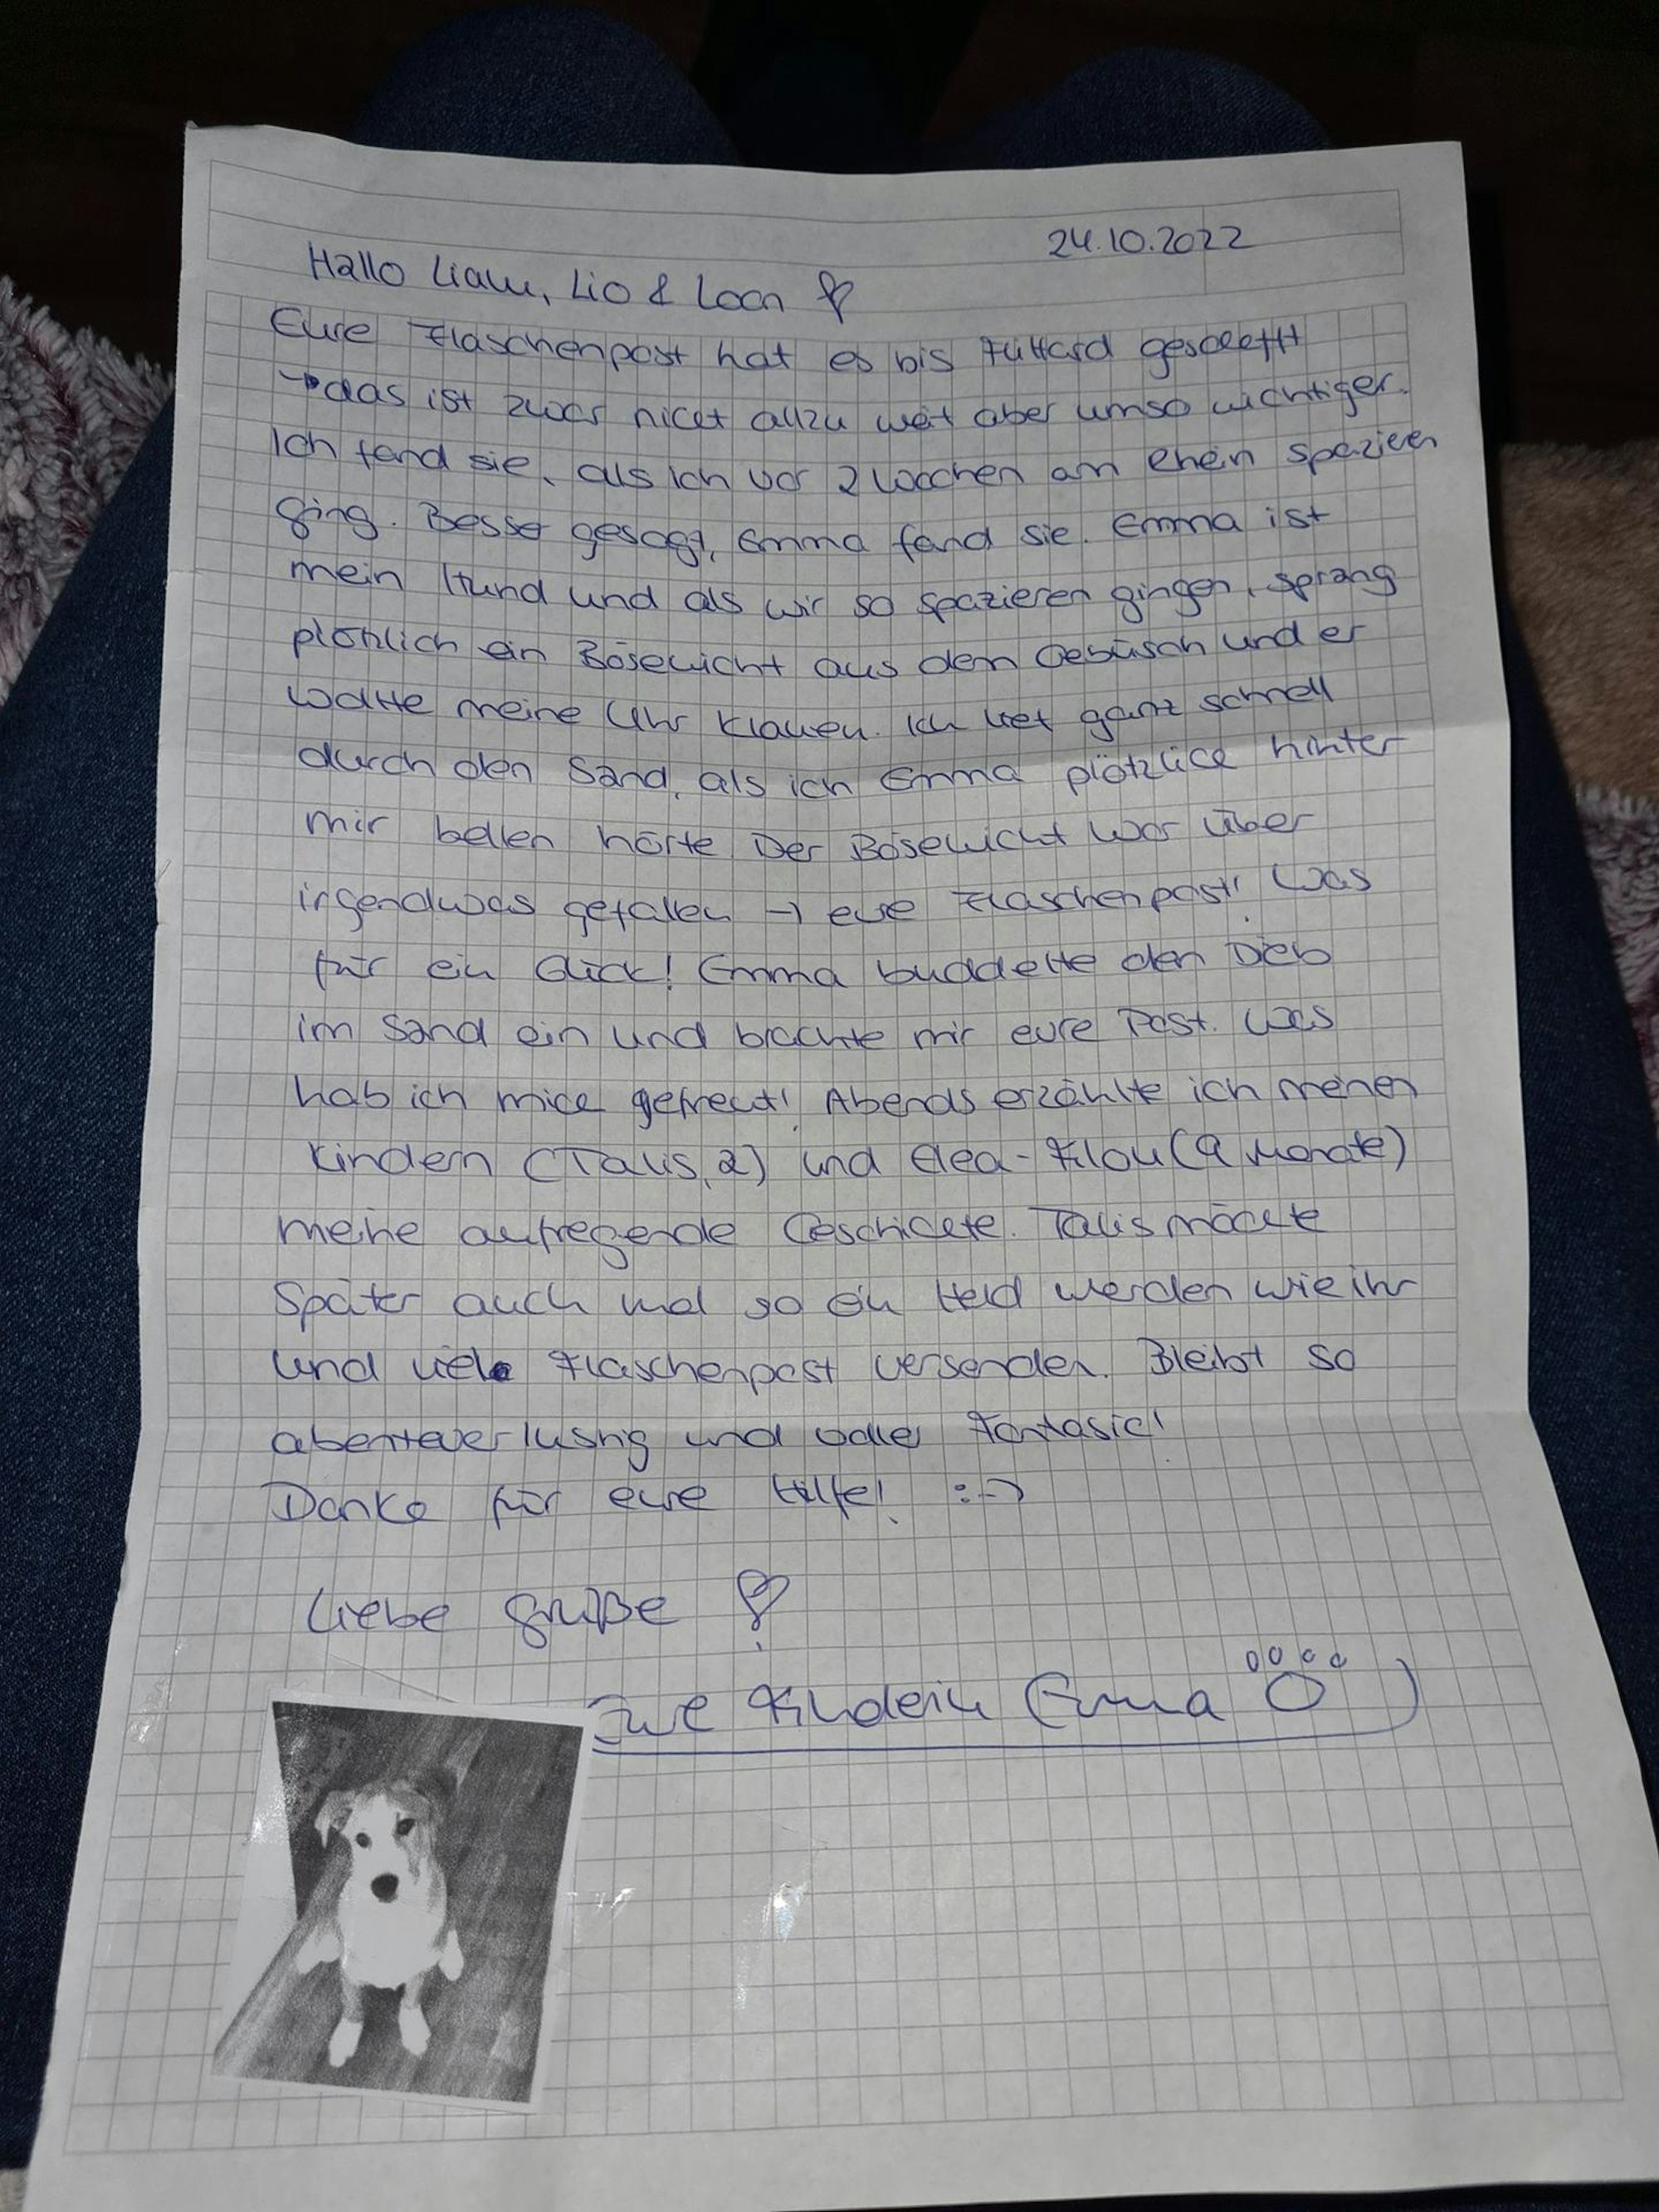 24.10.2022
Hallo Liam, Lio & Loan
Eure Flaschenpost hat es bis Flittard geschafft
→ das ist zwar nicht allzu weit aber umso wichtiger.
Ich fand sie, als ich vor 2 Wochen am Rhein spazieren
ging. Besser gesagt, Emma fand sie. Emma ist
mein Hund und als wir so spazieren gingen, sprang
plötzlich ein Bösewicht aus dem Gebüsch und er
wollte meine Uhr klauen. Ich lief ganz schnell
durch den Sand, als ich Emma plötzlich hinter
mir bellen hörte. Der Bösewicht war über
irgendwas gefallen → eure Flaschenpost! Was
für ein Glück! Emma buddelte den Dieb
im Sand ein und brachte mir eure Post. Was
hab ich mich gefreut! Abends erzählte ich meinen
Kindern (Talis, 2) und Elea-Filou (9 Monate)
meine aufregende Geschichte. Talis möchte
später auch mal so ein Held werden wie ihr
und viele Flaschenpost versenden. Bleibt so
abenteuerlustig und voller Fantasie!
Danke für eure Hilfe! :-)
Liebe Grüße
Eure Finderin (Emma )